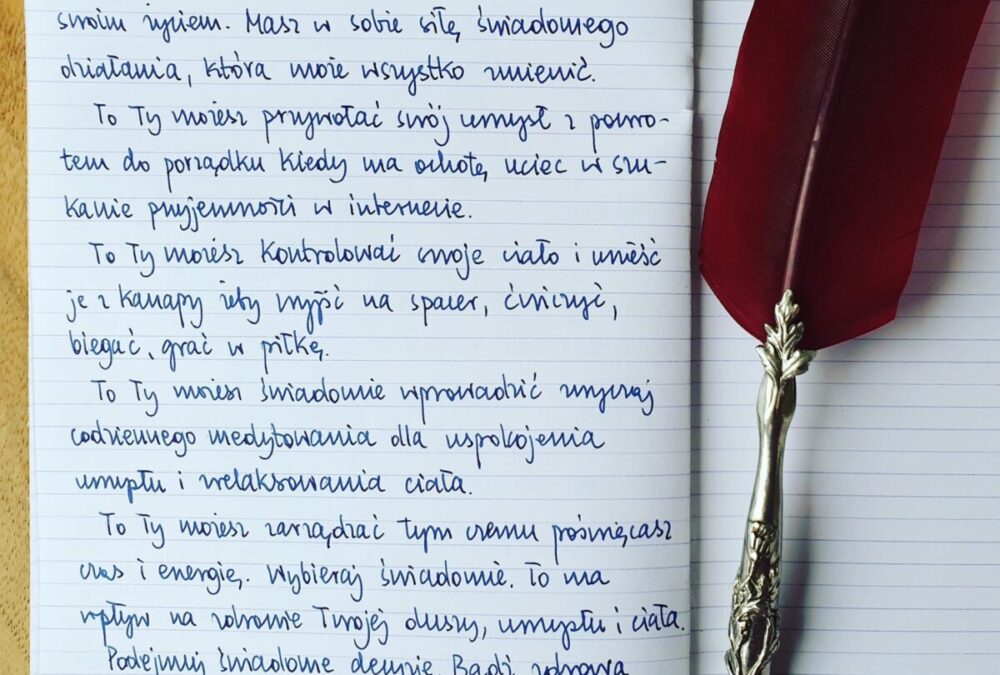 swoim życiem. Masz w sobie siłę świadomego
działania, która może wszystko zmienić.
To Ty możesz przywołać swój umysł z powro-
tem do porządku kiedy ma ochotę uciec w szu-
kanie przyjemności w internecie.
To Ty możesz kontrolować swoje ciało i unieść
je z kanapy żeby wyjść na spacer, ćwiczyć,
biegać, grać w piłkę.
To Ty możesz świadomie wprowadzić zwyczaj
codziennego medytowania dla uspokojenia
umysłu i zrelaksowania ciała.
To Ty możesz zarządzać tym czemu poświęcasz
czas i energię. Wybieraj świadomie. To ma
wpływ na zdrowie Twojej duszy, umysłu i ciała.
Podejmuj świadome decyzje. Bądź zdrowa